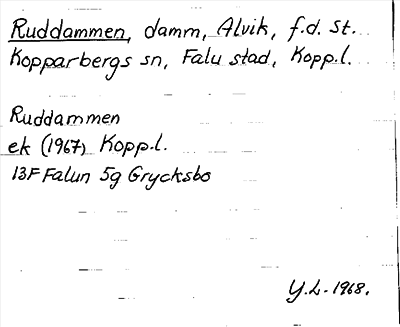 Ruddammen, damm, Alvik, f.d. St.
Kopparbergs sn, Falu stad, Kopp.l.
Ruddammen
ek (1967) Kopp.l.
13F Falun 5g Grycksbo
Y.L. 1968.